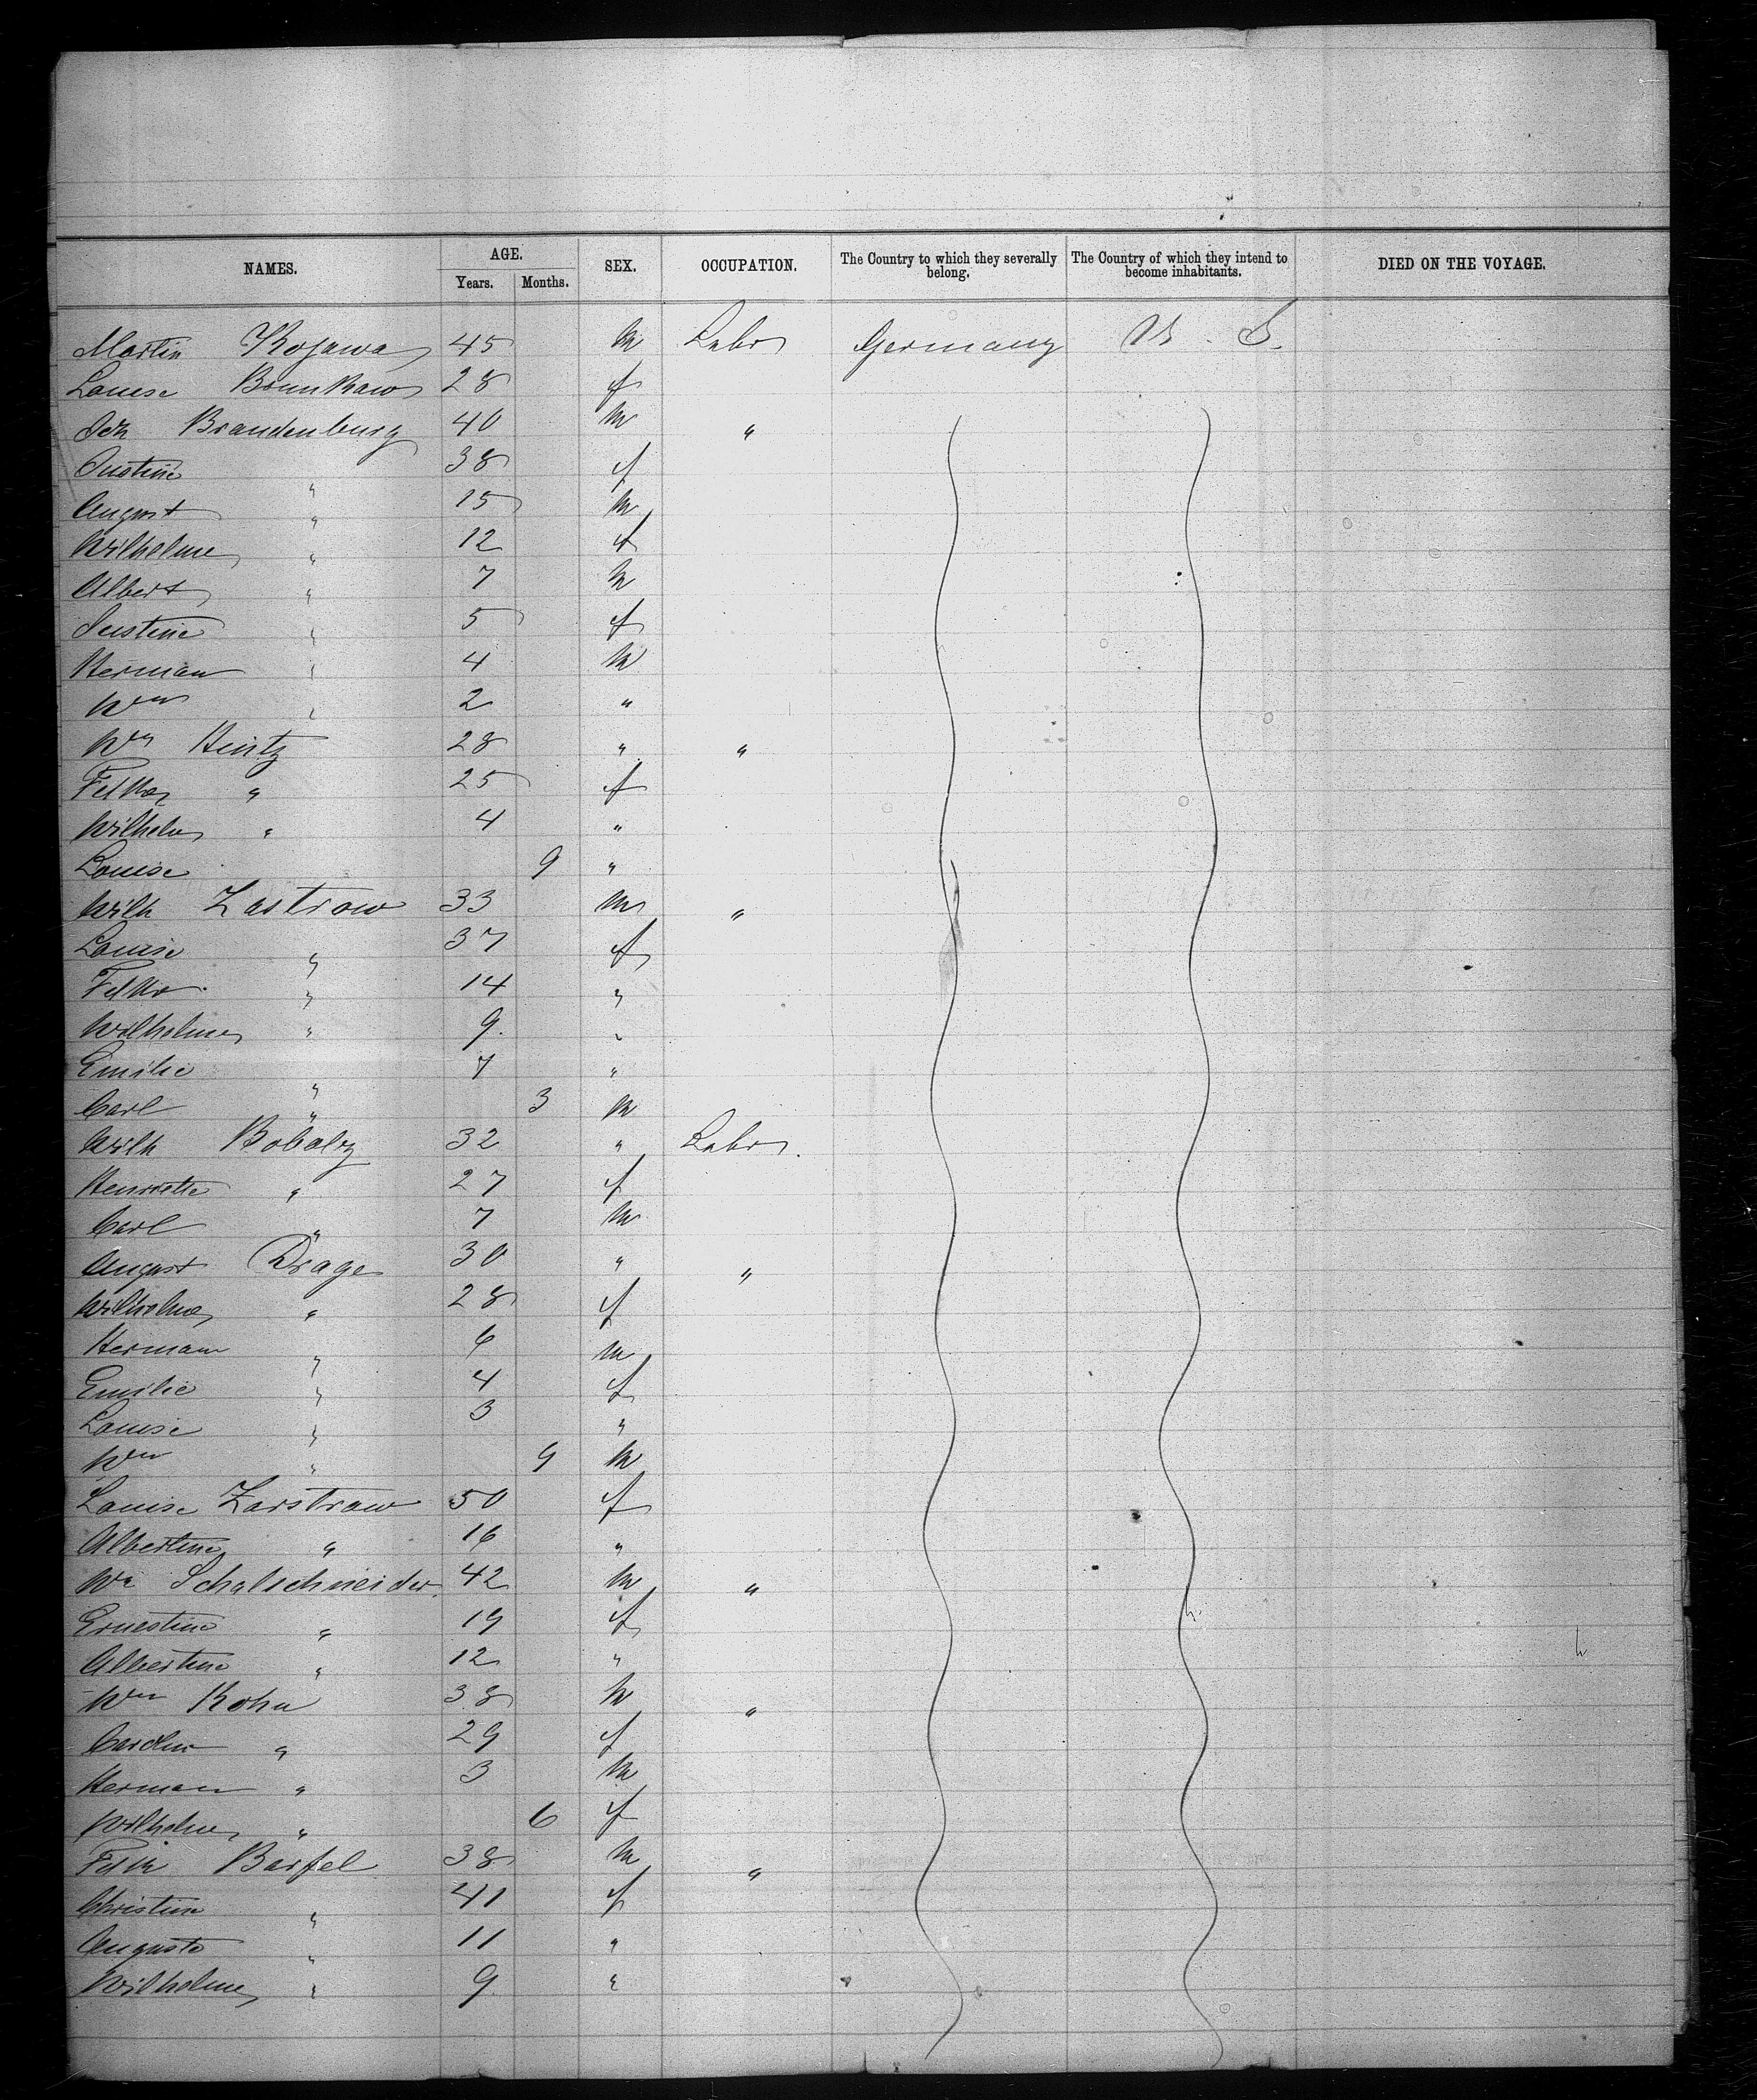 NAMES. AGE. SEX. OCCUPATION. The Country to which they severally belong. The Country of which they intend to become inhabitants. DIED ON THE VOYAGE.
Years. Months.
Martin Kojawa 45 m Labr Germany U. S.
Louise 28 f
Joh Brandenburg 40 m "
Justine " 38 f
August " 15 m
Wilhelme " 12 f
Albert " 7 m
Justine " 5 f
Herman " 4 m
Wm " 2 "
Wm Hintz 28 " "
" 25 f
Wilhelm " 4 "
Louise 9 "
Wilh Zastrow 33 m "
Louise " 37 f
" 14 "
Wilhelme " 9 "
Emilie " 7 "
Carl " 3 m
Wilh 32 " Labr.
Henriette " 27 f
Carl " 7 m
August Drage 30 " "
Wilhelme " 28 f
Hermann " 6 m
Emilie " 4 f
Louise " 3 "
Wm " 9 m
Louise Zarstraw 50 f
Albertine " 16 "
Wm Schalschneider 42 m "
Ernestine " 19 f
Albertine " 12 "
Wm Kohn 38 m "
Carolin " 29 f
Herman " 3 m
Wilhelm " 6 f
Barfel 38 m "
Christine " 41 f
Auguste " 11 "
Wilhelme " 9 "